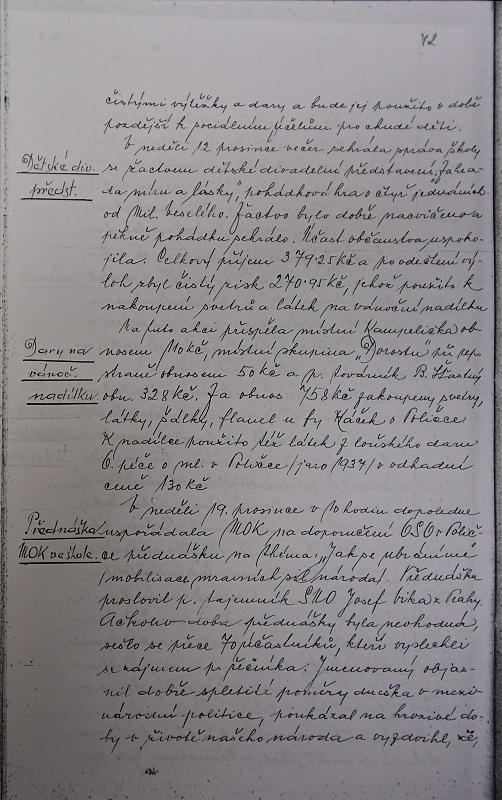 72
čistými výtěžky a dary a bude jej použito v době
pozdější k sociálním účelům pro chudé děti.
V neděli 12 prosince večer sehrála správa školy
Dětské div. předst.
se žactvem dětské divadelní představení „Zahra-
da míru a lásky“, pohádková hra o čtyř jednáních
od Mil. Veselého. Žactvo bylo dobře nacvičeno a
pěkně pohádku sehrálo. Účast občanstva uspoko-
jila. Celkový příjem 379·25 Kč a po odečtení vý-
loh zbyl čistý zisk 270·95 Kč, jehož použito k
nakoupení svetrů a látek na vánoční nadílku
Na tuto akci přispěla místní Kampelička ob-
Dary na vánoč. nadílku
nosem 110 Kč, místní skupina „Dorostu“ při rep.
straně obnosem 50 Kč a p. továrník B. Šťastný
obn. 328 Kč. Za obnos 758 Kč zakoupeny svetry,
látky, šálky, flanel u fy Háček v Poličce
K nadílce použito též látek z loňského daru
O. péče o ml. v Poličce /jaro 1937/ v odhadní
ceně 130 Kč
V neděli 19. prosince v 10 hodin dopoledne
Přednáška MOK ve škole.
uspořádala MOK na doporučení OSO v Polič-
ce přednášku na thema: „Jak se ubráníme
/mobilisace mravních sil národa/. Přednášku
proslovil p. tajemník Josef z Prahy.
Ačkoliv doba přednášky byla nevhodná,
sešlo se přece 70 účastníků, kteří vyslechli
se zájmem p. řečníka. Jmenovaný objas-
nil dobře spletité poměry dneška v mezi-
národní politice, poukázal na hrozivé do-
by v životě našeho národa a vyzdvihl, že,